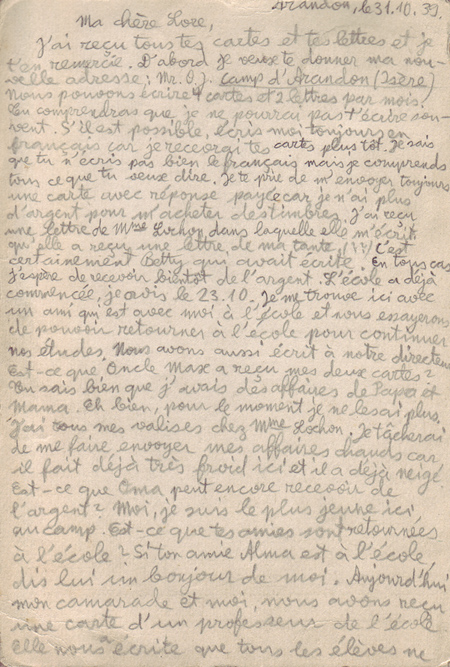 Arandon, le 31.10.39.
Ma chère Lore,
J'ai reçu tous tes cartes et tes lettres et je
t'en remercie. D'abord je veux te donner ma nou-
velle adresse: Mr. O.J. Camp d'Arandon (Isère)
Nous pouvons écrire 4 cartes et 2 lettres par mois.
Tu comprendras que je ne pourrai pas t'écrire sou-
vent. S'il est possible, écris moi toujours en
français car je recevrai tes cartes plus tôt. Je sais
que tu n'écris pas bien le français mais je comprends
tous ce que tu veux dire. Je te prie de m'envoyer toujours
une carte avec réponse payée car je n'ai plus
d'argent pour m'acheter des timbres. J'ai reçu
une lettre de Mme Lochon dans laquelle elle m'écrit
qu'elle a reçu une lettre de ma tante (??) C'est
certainement Betty qui avait écrite. En tous cas
j'espère de recevoir bientôt de l'argent. L'école a déjà
commencée, je crois le 23.10. Je me trouve ici avec
un ami qui est avec moi à l'école et nous essayerons
de pouvoir retourner à l'école pour continuer
nos études. Nous avons aussi écrit à notre directeur
Est-ce que Oncle Max a reçu mes deux cartes?
Tu sais bien que j'avais des affaires de Papa et
Mama. Eh bien, pour le moment je ne les ai plus.
J'ai tous mes valises chez Mme Lochon. Je tâcherai
de me faire envoyer mes affaires chauds car
il fait déjà très froid ici et il a déjà neigé
Est-ce que Oma peut encore recevoir de
l'argent? Moi, je suis le plus jeune ici
au camp. Est-ce que tes amies sont retournées
à l'école? Si ton amie Alma est à l'école,
dis lui un bonjour de moi. Aujourd'hui
mon camarade et moi, nous avons reçu
une carte d'un professeur de l'école
Elle nous a écrite que tous les élèves ne